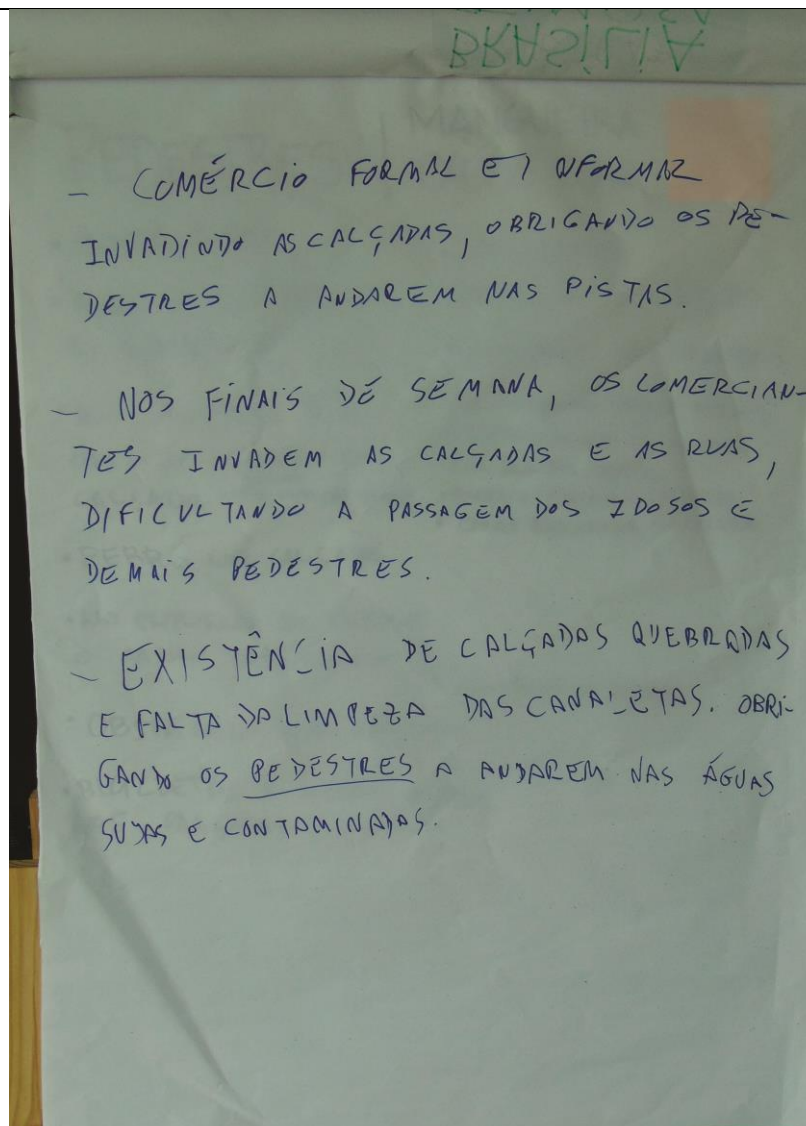 BRASÍLIA
- COMÉRCIO FORMAL E INFORMAL
INVADINDO AS CALÇADAS, OBRIGANDO OS PE-
DESTRES A ANDAREM NAS PISTAS.
- NOS FINAIS DE SEMANA, OS COMERCIAN-
TES INVADEM AS CALÇADAS E AS RUAS,
DIFICULTANDO A PASSAGEM DOS IDOSOS E
DEMAIS PEDESTRES.
- EXISTÊNCIA DE CALÇADAS QUEBRADAS
E FALTA DA LIMPEZA DAS CANALETAS. OBRI-
GANDO OS PEDESTRES A ANDAREM NAS ÁGUAS
SUJAS E CONTAMINADAS.